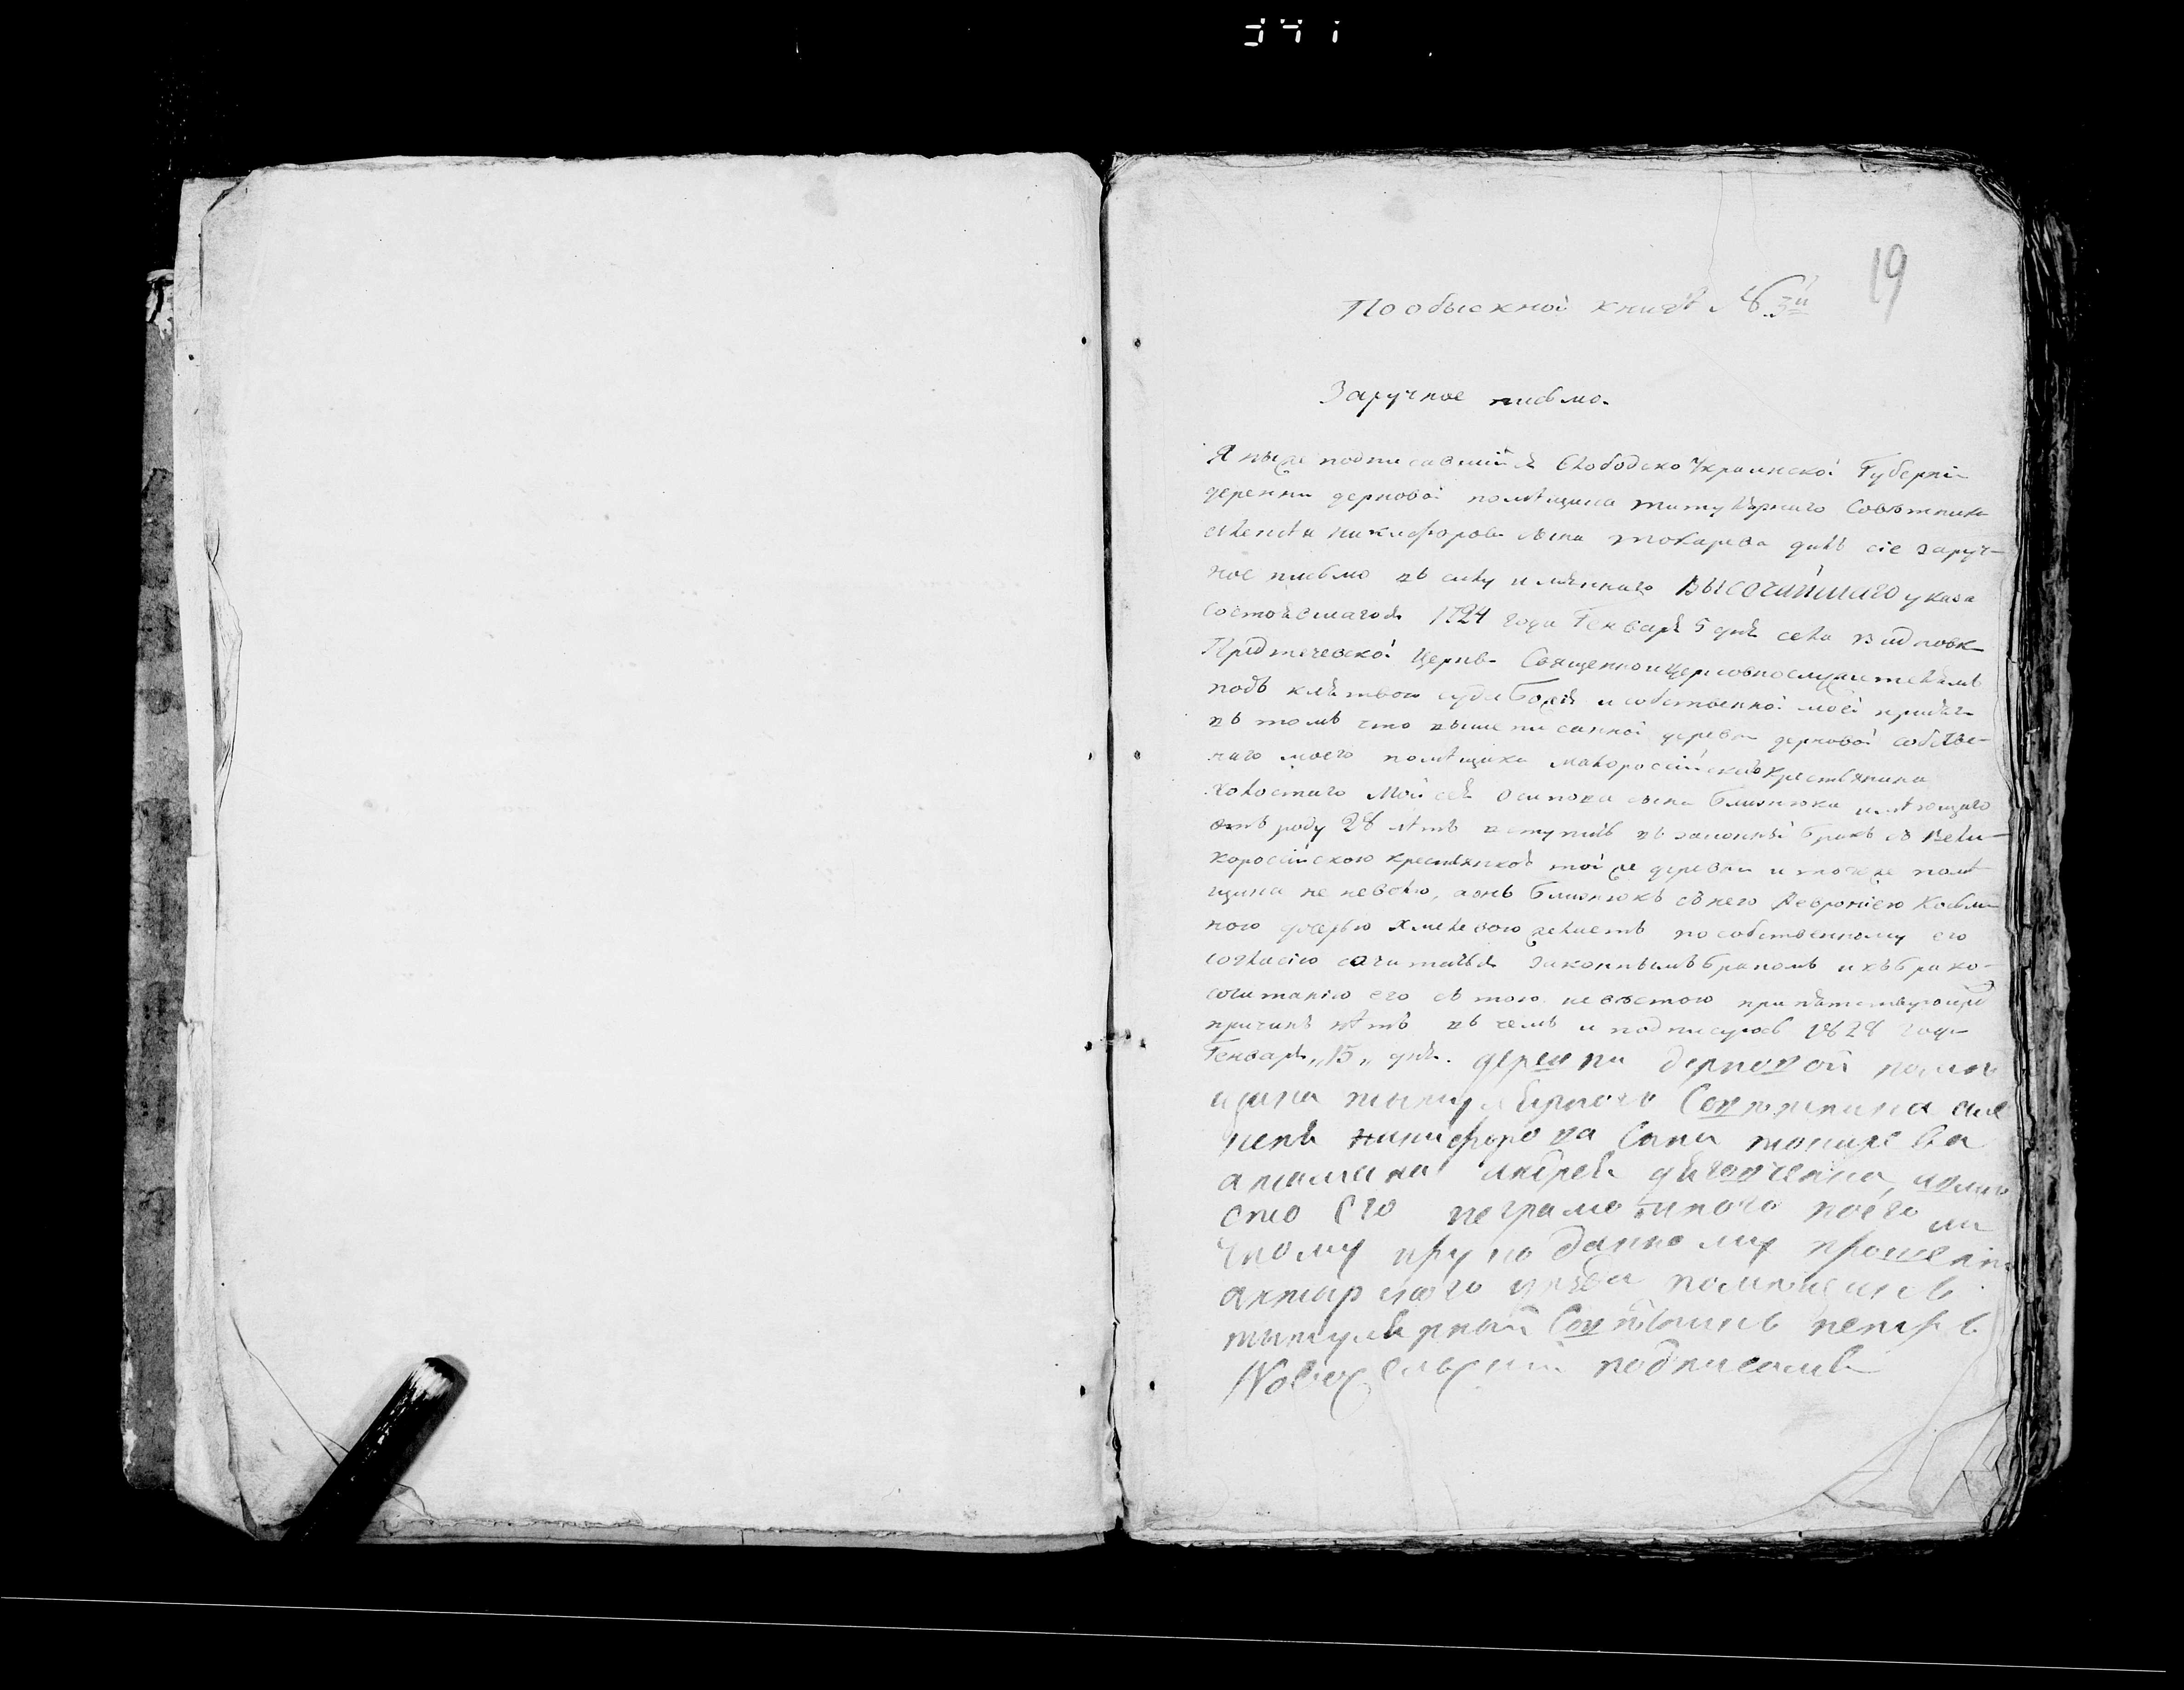 19
По обыскной книгѣ № 3й
Заручное письмо.
Я ниже подписавшійся Слободско Украинской Губерніи
деревни дерновой помѣщика титулярнаго Совѣтника
никифорова сына токарева далъ сіе заруч-
ное письмо въ силу имяннаго ВЫСОЧАЙШАГО указа
состоявшагося 1724 года Генваря 5 дня села
Предтечевской Церкви Священноицерковнослужителямъ
подъ клятвою суда Божія и собственной моей
въ томъ что вышеписанной деревни дерновой собстве-
наго моего помѣщика малороссійскаго крестьянина
холостаго Мойсея осипова сына Близнюка имѣющаго
отъ роду 28 лѣтъ вступить въ законный бракъ съ Вели-
коросійскою крестьянкою той же деревни и того же помѣ-
щика не неволю, а онъ Близнюкъ съ нею Февроніею Косьми-
ною дочерью Хмелевою желаетъ по собственному его
согласію сочитаться законнымъ бракомъ и къ брако-
сочитанію его съ тою невѣстою припятствующей
причинъ нѣтъ въ чемъ и подписуюсь 1828 года
Генваря „15„ дня. деревни дерновой помѣ
щика титулярного Советника
никифорова Сына токарева
атамана андрея вмѣ
сто Его неграмотного по его ли
чному ируко данному прошению
помѣщикъ
титулярный Советникъ петръ
подписался